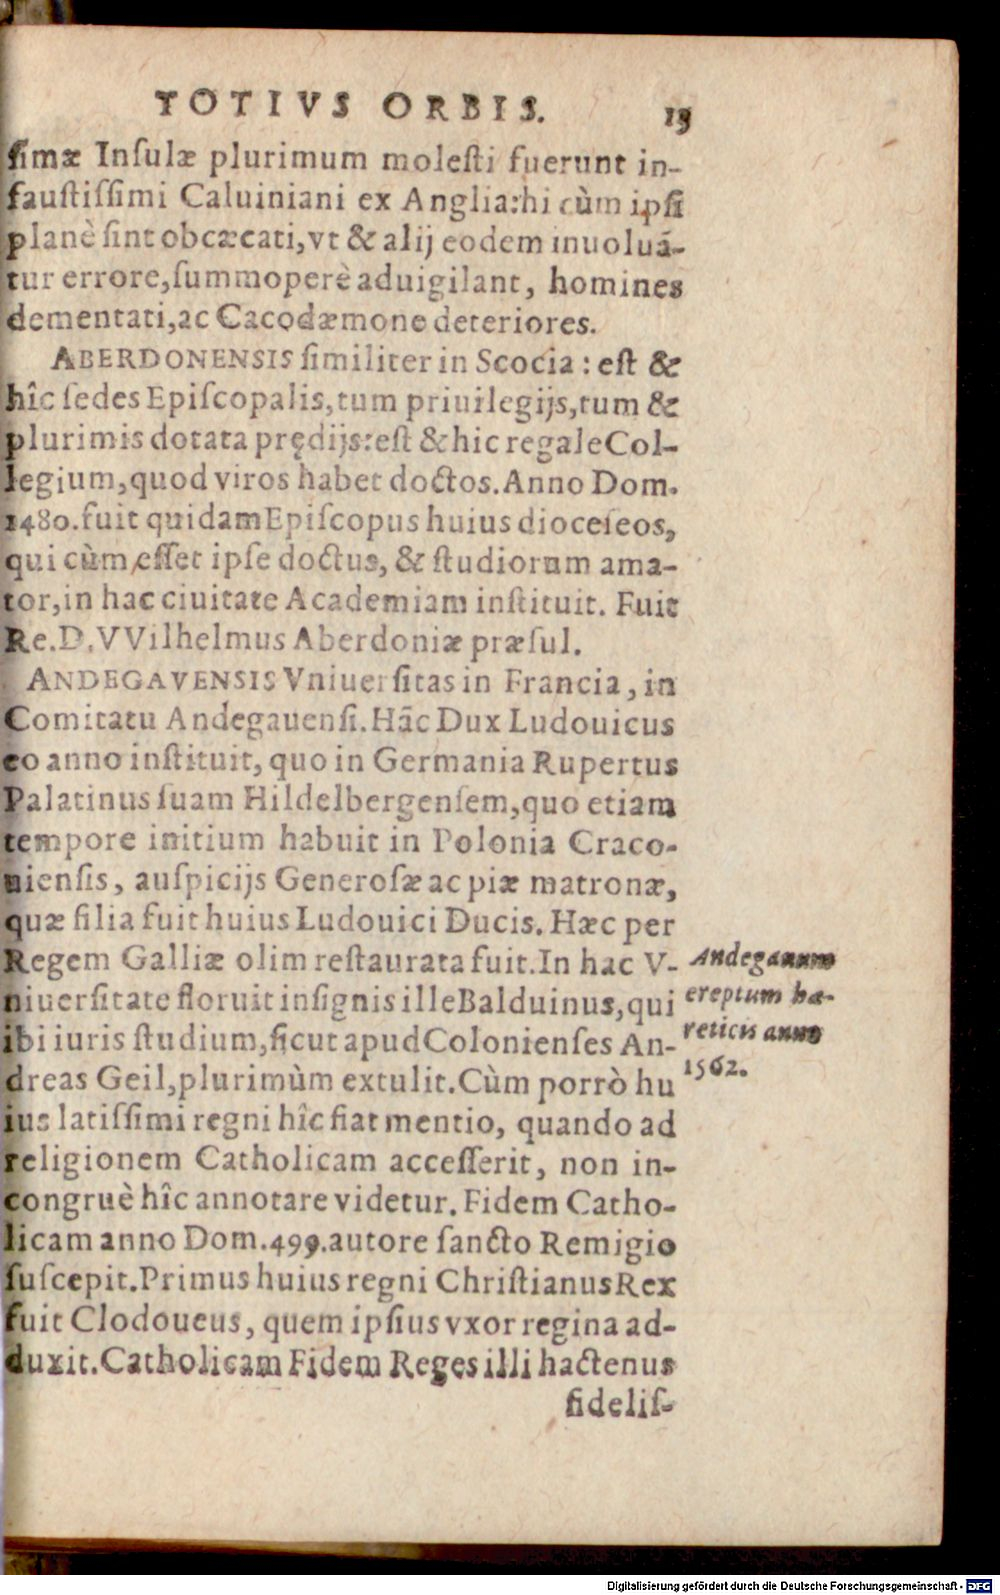 TOTIVS ORBIS. 13
ſimæ Inſulæ plurimum moleſti fuerunt in-
fauſtiſſimi Caluiniani ex Anglia: hi cùm ipſi
planè ſint obcæcati, vt & alij eodem inuoluā-
tur errore, ſummoperè aduigilant, homines
dementati, ac Cacodæmone deteriores.
ABERDONENSIS ſimiliter in Scocia: eſt &
hîc ſedes Epiſcopalis, tum priuilegijs, tum &
plurimis dotata prędijs: eſt & hic regale Col-
legium, quod viros habet doctos. Anno Dom.
1480. fuit quidam Epiſcopus huius dioceſeos,
qui cùm eſſet ipſe doctus, & ſtudiorum ama-
tor, in hac ciuitate Academiam inſtituit. Fuit
Re. D. VVilhelmus Aberdoniæ præſul.
ANDEGAVENSIS Vniuerſitas in Francia, in
Comitatu Andegauenſi. Hāc Dux Ludouicus
eo anno inſtituit, quo in Germania Rupertus
Palatinus ſuam Hildelbergenſem, quo etiam
tempore initium habuit in Polonia Craco-
uienſis, auſpicijs Generoſæ ac piæ matronæ,
quæ filia fuit huius Ludouici Ducis. Hæc per
Regem Galliæ olim reſtaurata fuit. In hac V-
niuerſitate floruit inſignis ille Balduinus, qui
ibi iuris ſtudium, ſicut apud Colonienſes An-
dreas Geil, plurimùm extulit. Cùm porrò hu
ius latiſſimi regni hîc fiat mentio, quando ad
religionem Catholicam acceſſerit, non in-
congruè hîc annotare videtur. Fidem Catho-
licam anno Dom. 499. autore ſancto Remigio
ſuſcepit. Primus huius regni Chriſtianus Rex
fuit Clodoueus, quem ipſius vxor regina ad-
duxit. Catholicam Fidem Reges illi hactenus
fideliſ-
Andegauum
ereptum hæ-
reticis anno
1562.
Digitalisierung gefördert durch die Deutsche Forschungsgemeinschaft - DFG